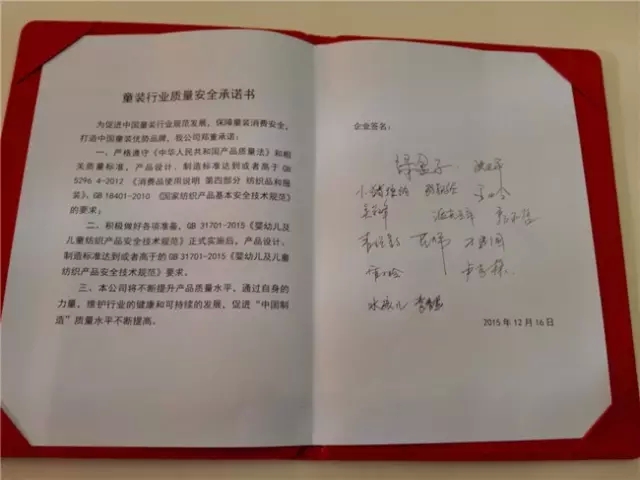 童装行业质量安全承诺书
为促进中国童装行业规范发展，保障童装消费安全，
打造中国童装优势品牌，我公司郑重承诺：
一、严格遵守《中华人民共和国产品质量法》和相
关质量标准，产品设计、制造标准达到或者高于 GB
5296.4-2012 《消费品使用说明 第四部分 纺织品和服
装》、GB 18401-2010 《国家纺织产品基本安全技术规范》
的要求；
二、积极做好各项准备，GB 31701-2015《婴幼儿及
儿童纺织产品安全技术规范》正式实施后，产品设计、
制造标准达到或者高于的 GB 31701-2015《婴幼儿及儿童
纺织产品安全技术规范》要求。
三、本公司将不断提升产品质量水平，通过自身的
力量，维护行业的健康和可持续的发展，促进“中国制
造”质量水平不断提高。
企业签名：
水孩儿
2015 年 12 月 16 日